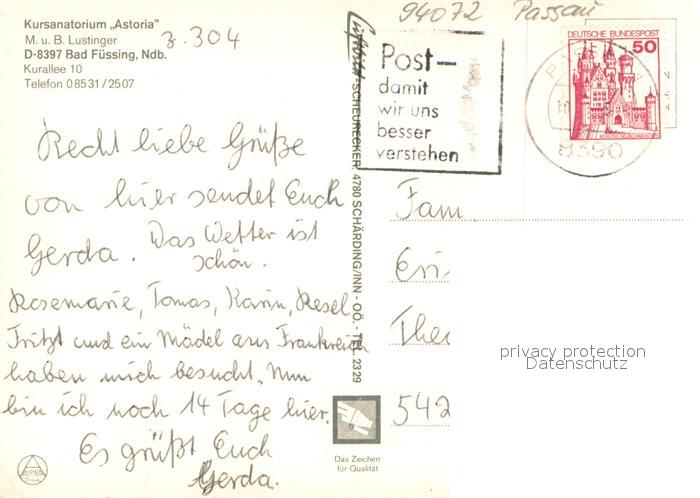 Kursanatorium „Astoria"
M. u. B. Lustinger
D-8397 Bad Füssing, Ndb.
Kurallee 10
Telefon 08531/2507
z. 304
94072 Passau
Post-
damit
wir uns
besser
verstehen
DEUTSCHE BUNDESPOST
50
8390
Recht liebe Grüße
von hier sendet Euch
Gerda. Das Wetter ist
schön.
Rosemarie, Tomas, Karin, Resel
Fritzl und ein Mädel aus Frankreich
haben mich besucht. Nun
bin ich noch 14 Tage hier.
Es grüßt Euch
Gerda.
-SCHEURECKER, 4780 SCHÄRDING/INN - OÖ. - TEL. 2329
Fam
Eri
Thei
542
privacy protection
Datenschutz
Das Zeichen
für Qualität
ALPINA